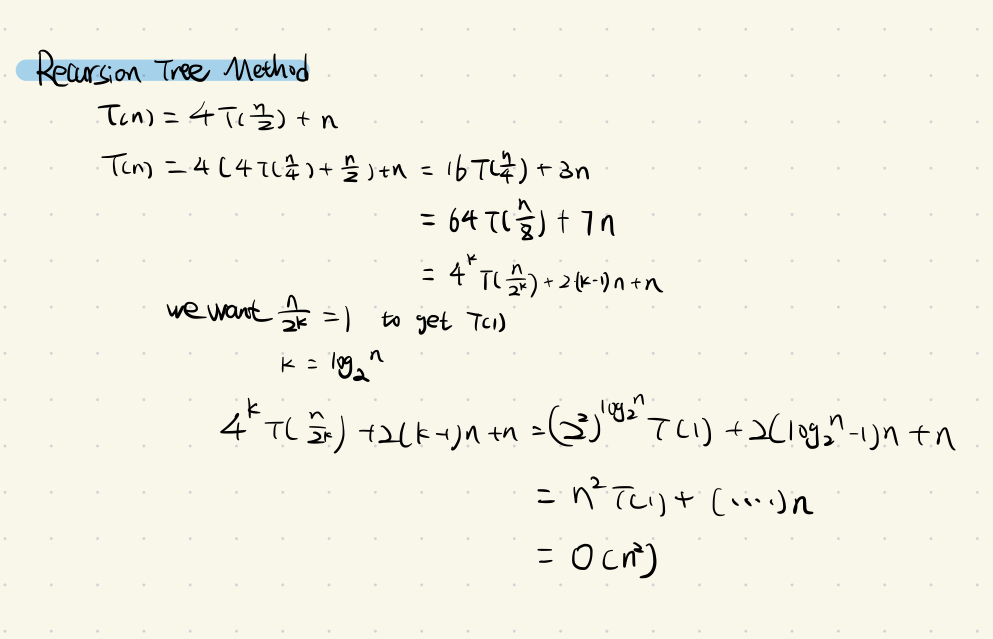 Recursion Tree Method
T(n) = 4T(n/2) + n
T(n) = 4(4T(n/4) + n/2) + n = 16T(n/4) + 3n
= 64T(n/8) + 7n
= 4^k T(n/2^k) + 2(k-1)n + n
we want n/2^k = 1 to get T(1)
k = log₂ⁿ
4^k T(n/2^k) + 2(k-1)n + n = (2²)^(log₂ⁿ) T(1) + 2(log₂ⁿ - 1)n + n
= n² T(1) + (....)n
= O(n²)